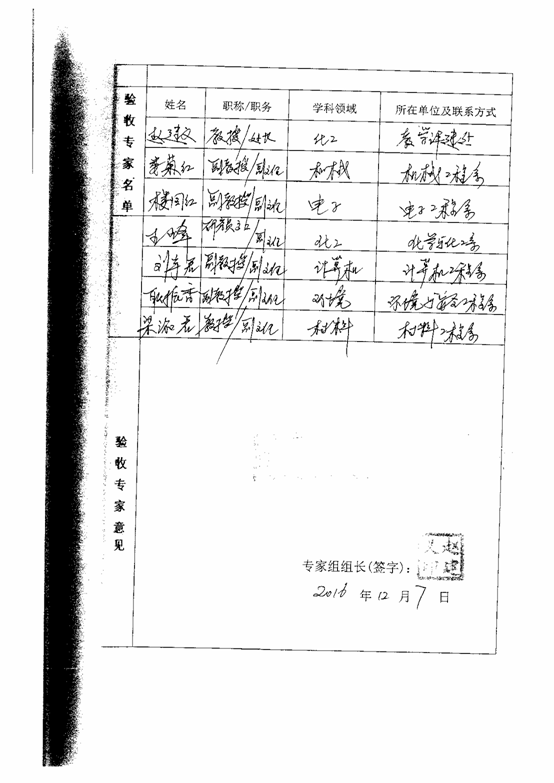 验收专家名单
姓名 职称/职务 学科领域 所在单位及联系方式
赵建文 教授/处长 化工
李菊红 副教授/副主任 机械 机械工程系
副教授/副主任 电子 电子工程系
王峰 /副主任 化工 化学与化工系
副教授/副主任 计算机 计算机工程系
副教授/副主任 环境 环境与安全工程系
梁淑君 教授/副主任 材料 材料工程系
验收专家意见
专家组组长(签字):
2016 年 12 月 7 日